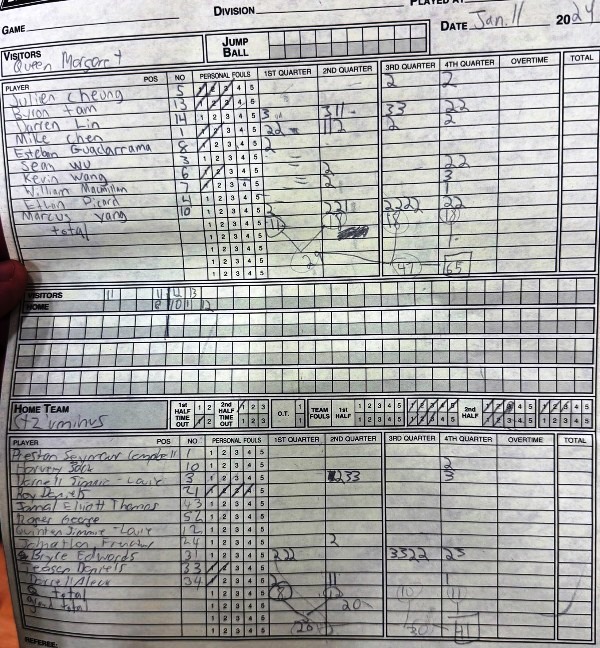 GAME
DIVISION
PLAYED AT
DATE Jan. 11 2024
VISITORS
Queen Margaret
JUMP BALL
PLAYER POS NO PERSONAL FOULS 1ST QUARTER 2ND QUARTER 3RD QUARTER 4TH QUARTER OVERTIME TOTAL
Julien Cheung 5 1 2 3 4 5 2 2
Byron Tam 13 1 2 3 4 5
Darren Lin 14 1 2 3 4 5 3 311 33 22
Mike Chen 1 1 2 3 4 5 22 112 2 2
Esteban Guadarrama 8 1 2 3 4 5 2
Sean Wu 3 1 2 3 4 5
Kevin Wang 6 1 2 3 4 5 2 22
William Macmillan 7 1 2 3 4 5 2 3
Ethan Picard 4 1 2 3 4 5 1
Marcus Yang 10 1 2 3 4 5 2 221 2222 22
total 1 2 3 4 5 11 18 18 18
1 2 3 4 5
1 2 3 4 5 29 47 65
1 2 3 4 5
VISITORS 11 11 12 13
HOME 8 10 11 12
HOME TEAM
1ST HALF TIME OUT 1 2 2ND HALF TIME OUT 1 2 3 O.T. 1 TEAM FOULS 1ST HALF 1 2 3 4 5 1 2 3 4 5 2ND HALF 1 2 3 4 5 1 2 3 4 5
PLAYER POS NO PERSONAL FOULS 1ST QUARTER 2ND QUARTER 3RD QUARTER 4TH QUARTER OVERTIME TOTAL
Preston Seymour Campbell 1 1 2 3 4 5
10 1 2 3 4 5 2
Darnell Jimmie-Louie 3 1 2 3 4 5 233 3
Roy Daniels 21 1 2 3 4 5
Jamal Elliott Thomas 43 1 2 3 4 5
George 52 1 2 3 4 5
Quinten Jimmie-Louie 12 1 2 3 4 5
24 1 2 3 4 5 2
Bryce Edwards 31 1 2 3 4 5 222 3322 25
Daniels 33 1 2 3 4 5
Darrell Aleck 34 1 2 3 4 5 2 11 1
total 1 2 3 4 5 8 12 10 11
total 1 2 3 4 5 20
1 2 3 4 5 20 30 41
REFEREE: